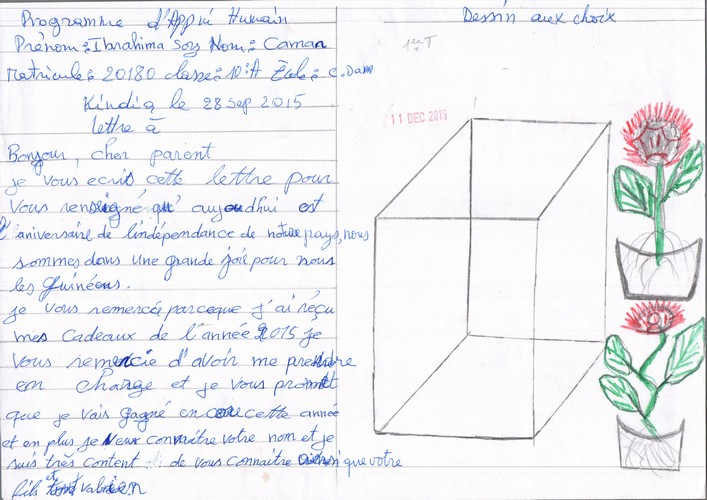 Programme d'Appui Humain
Prénom : Ibrahima Soy Nom : Caman
Matricule : 20180 classe : 10:A École : C. Dam
Kindia le 28 Sep 2015
lettre à
Bonjour, cher parent
je vous ecris cette lettre pour
vous renseigné qu' aujoudhui est
l'aniversaire de l'indépendance de notre pays, nous
sommes dans une grande joie pour nous
les guinéens.
je vous remercé parceque j'ai réçu
mes cadeaux de l'année 2015 je
vous remercie d'avoir me prendre
en charge et je vous promet
que je vais gagné encore cette année
et en plus je veux connaitre votre nom et je
suis très content de vous connaitre ainsi que votre
fils et
Dessin aux choix
1er T
11 DEC 2015